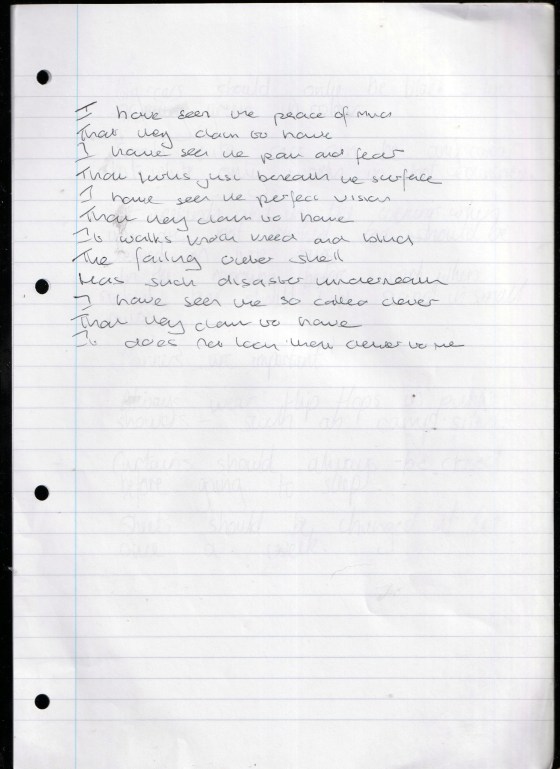 I have seen the peace of mind
That they claim to have
I have seen the pain and fear
That lurks just beneath the surface
I have seen the perfect vision
That they claim to have
It walks knock kneed and blind
The failing outer shell
Has such disaster underneath
I have seen the so called clever
That they claim to have
It does not look clever to me